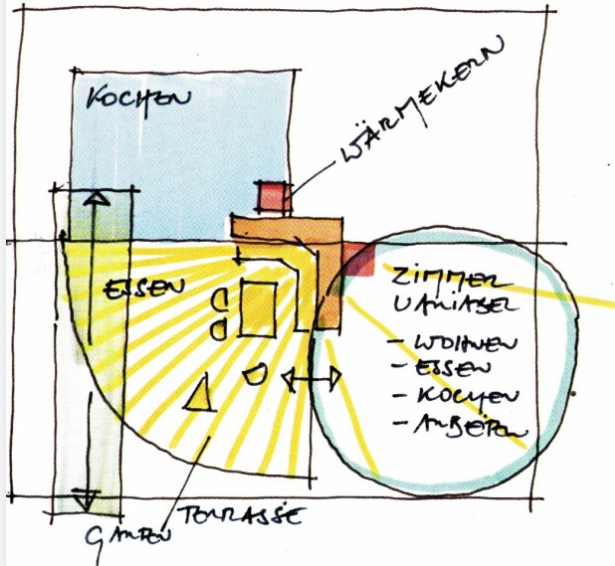 KOCHEN
WÄRMEKERN
ESSEN
ZIMMER
VARIABEL
- WOHNEN
- ESSEN
- KOCHEN
- ARBEITEN
TERRASSE
GARTEN